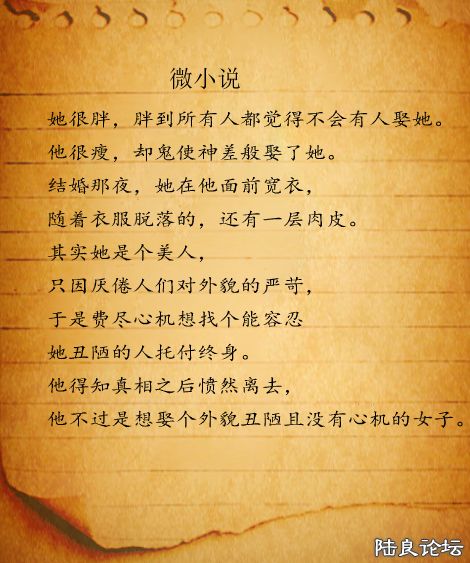 微小说
她很胖，胖到所有人都觉得不会有人娶她。
他很瘦，却鬼使神差般娶了她。
结婚那夜，她在他面前宽衣，
随着衣服脱落的，还有一层肉皮。
其实她是个美人，
只因厌倦人们对外貌的严苛，
于是费尽心机想找个能容忍
她丑陋的人托付终身。
他得知真相之后愤然离去，
他不过是想娶个外貌丑陋且没有心机的女子。
陆良论坛